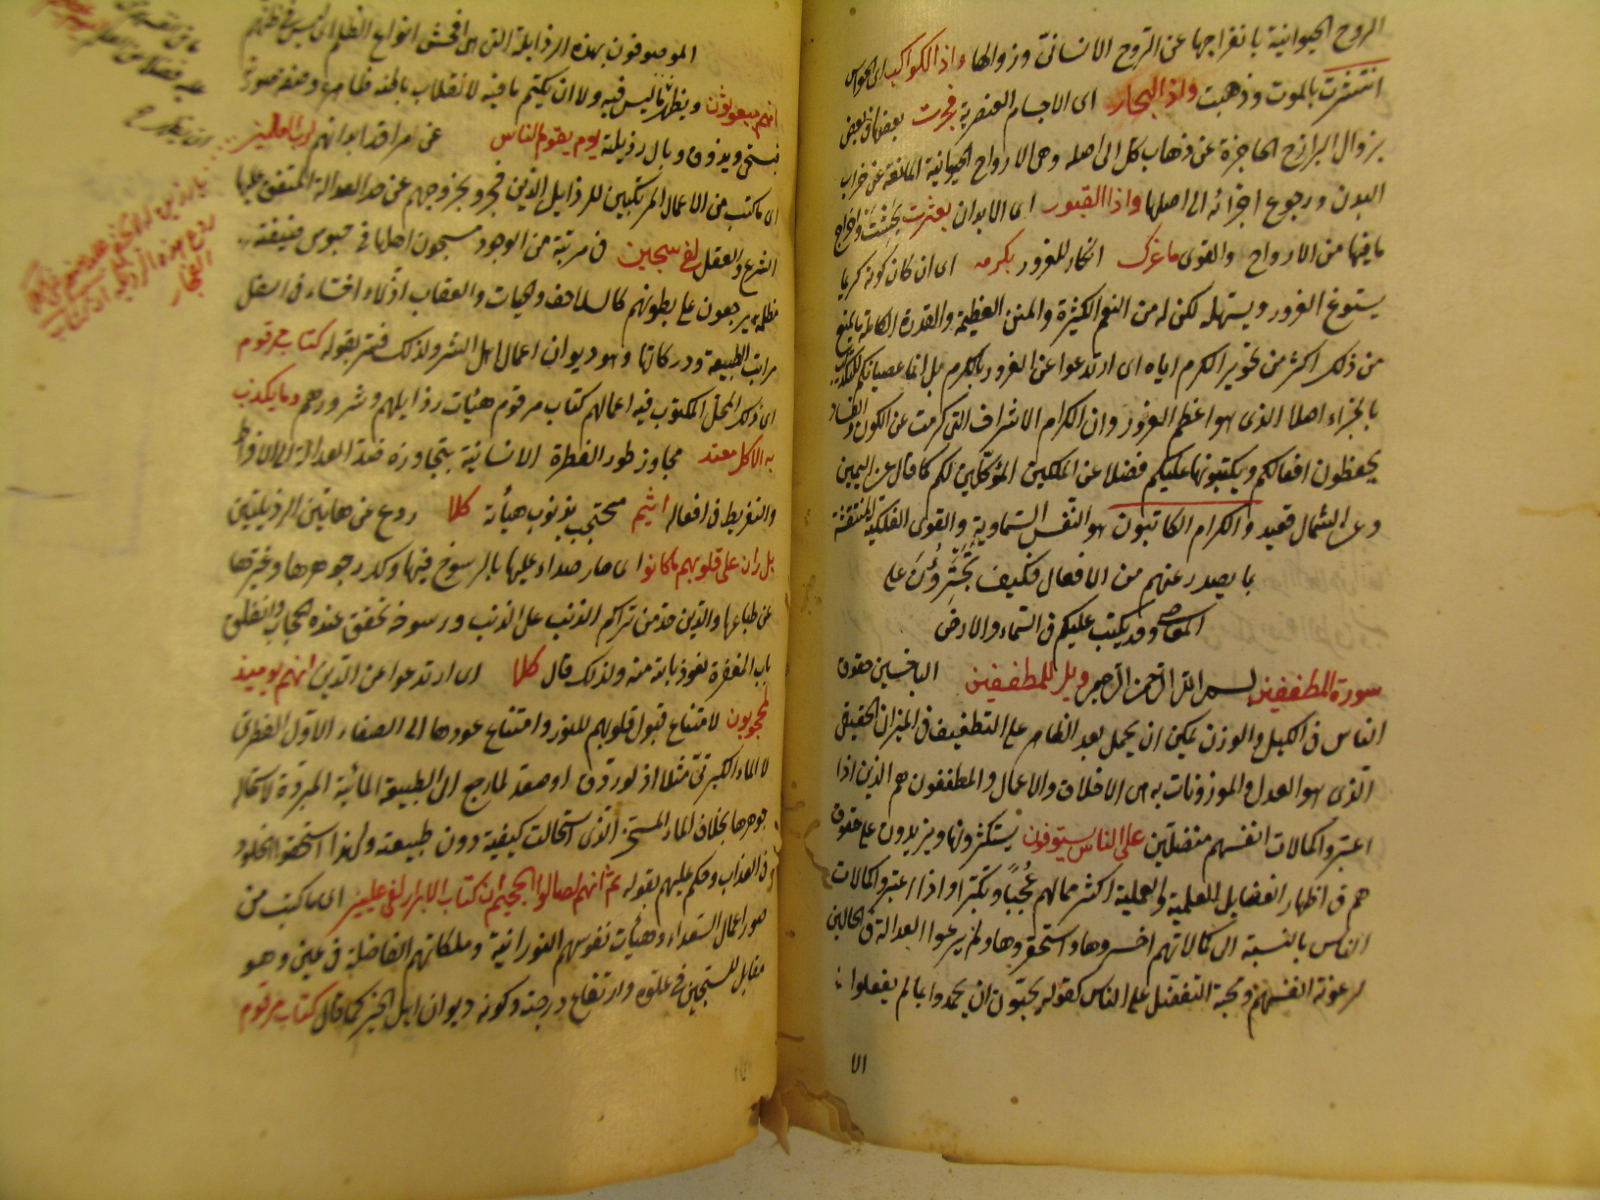 الروح الحيوانية بانفراجها عن الروح الانسانى وزوالها واذا الكواكب اى الحواس
انتثرت بالموت وذهبت واذا البحار اى الاجسام العنصرية فجرت بعضها فى بعض
بزوال البرازخ الحاجزة عن ذهاب كل الى اصله وهى الارواح الحيوانية المانعة عن خراب
البدن ورجوع اجزائه الى اصلها واذا القبور اى الابدان بعثرت بحثت واخراج
ما فيها من الارواح والقوى ما غرك انكار للغرور بكرمه اى ان كان كونه كريما
يسوغ الغرور ويسهله لكن له من النعم الكثيرة والمنن العظيمة والقدرة الكاملة ما يمنع
من ذلك اكثر من تجويز الكرم اياه اى ارتدعوا عن الغرور بالكرم بل انما عصيانكم للتكذيب
بالجزاء اصلا الذى هو اعظم الغرور وان الكرام الاشراف التى كرمت عن الكون والفساد
يحفظون افعالكم ويكتبونها عليكم فضلا عن الملكين الموكلين لكم كما قال عن اليمين
وعن الشمال قعيد والكرام الكاتبون هو النفس السماوية والقوى الفلكية المنتقشة
بما يصدر عنهم من الافعال فكيف تجترؤن على
المعاصى وقد يكتب عليكم فى السماء والارض
سورة المطففين بسم الله الرحمن الرحيم ويل للمطففين الباخسين حقوق
الناس فى الكيل والوزن يمكن ان يحمل بعد الظاهر على التطفيف فى الميزان الحقيقى
الذى هو العدل والموزونات به هى الاخلاق والاعمال والمطففون هم الذين اذا
اعتبروا كمالات انفسهم متفضلين على الناس يستوفون يستكثرونها ويزيدون على حقوق
هم فى اظهار الفضايل العلمية والعملية اكثر مما لهم عجبا وتكبرا واذا اعتبروا كمالات
الناس بالنسبة الى كمالاتهم اخسروها واستحقروها ولم يرعوا العدالة فى الحالين
لرعونة انفسهم ومحبة التفضل على الناس كقوله يحبون ان يحمدوا بما لم يفعلوا
الا
الموصوفون بهذه الرذايلة التى هى افحش انواع الظلم اى ليس فى ظنهم
انهم مبعوثون ويظهر ما ليس فيه ولا ان يكتم ما فيه لانقلاب باطنه ظاهره وصفة صورته
ويذوق وبال رذيلته يوم يقوم الناس عن مراقد ابدانهم لرب العالمين
اى ما كتب من الاعمال المرتكبين للرذايل الذين فجروا بخروجهم عن حد العدالة المتفق عليها
الشرع والعقل لفى سجين فى مرتبة من الوجود مسجون اهلها فى حبوس ضيقة
مظلمة يرجعون على بطونهم كالسلاحف والحيات والعقارب اذلاء اخساء فى اسفل
مراتب الطبيعة ودركاتها وهو ديوان اعمال اهل الشر ولذلك فسر بقوله كتاب مرقوم
اى ذلك المحل المكتوب فيه اعمالهم كتاب مرقوم هيئات رذايلهم وشرورهم وما يكذب
به الا كل معتد مجاوز طور الفطرة الانسانية بتجاوزه ضد العدالة الى الافراط
والتفريط فى افعاله اثيم محتجب بذنوب هيأته كلا ردع عن هاتين الرذيلتين
بل ران على قلوبهم ما كانوا اى صار صداء عليها بالرسوخ فيها وكدر جوهرها وغيرها
عن طباعها والرين حد من تراكم الذنب على الذنب ورسوخه تحقق عنده الحجاب وانغلق
باب المغفرة نعوذ بالله منه ولذلك قال كلا اى ارتدعوا عن الرين انهم يومئذ
لمحجوبون لامتناع قبول قلوبهم للنور وامتناع عودها الى الصفاء الاول الفطرى
كالماء الكبرتى مثلا اذ لو روق او صعد لما رجع الى الطبيعة المائية المبردة لاستحالة
جوهرها بخلاف الماء المسخن الذى استحالت كيفيته دون طبيعته ولهذا استحقوا الخلود
فى العذاب وحكم عليهم بقوله ثم انهم لصالوا الجحيم ان كتاب الابرار لفى عليين اى ما كتب من
صور اعمال السعداء وهيئات نفوسهم النورانية وملكاتهم الفاضلة فى عليين وهو
مقابل للسجين فى علوه وارتفاع درجته وكونه ديوان اهل الخير كما قال كتاب مرقوم